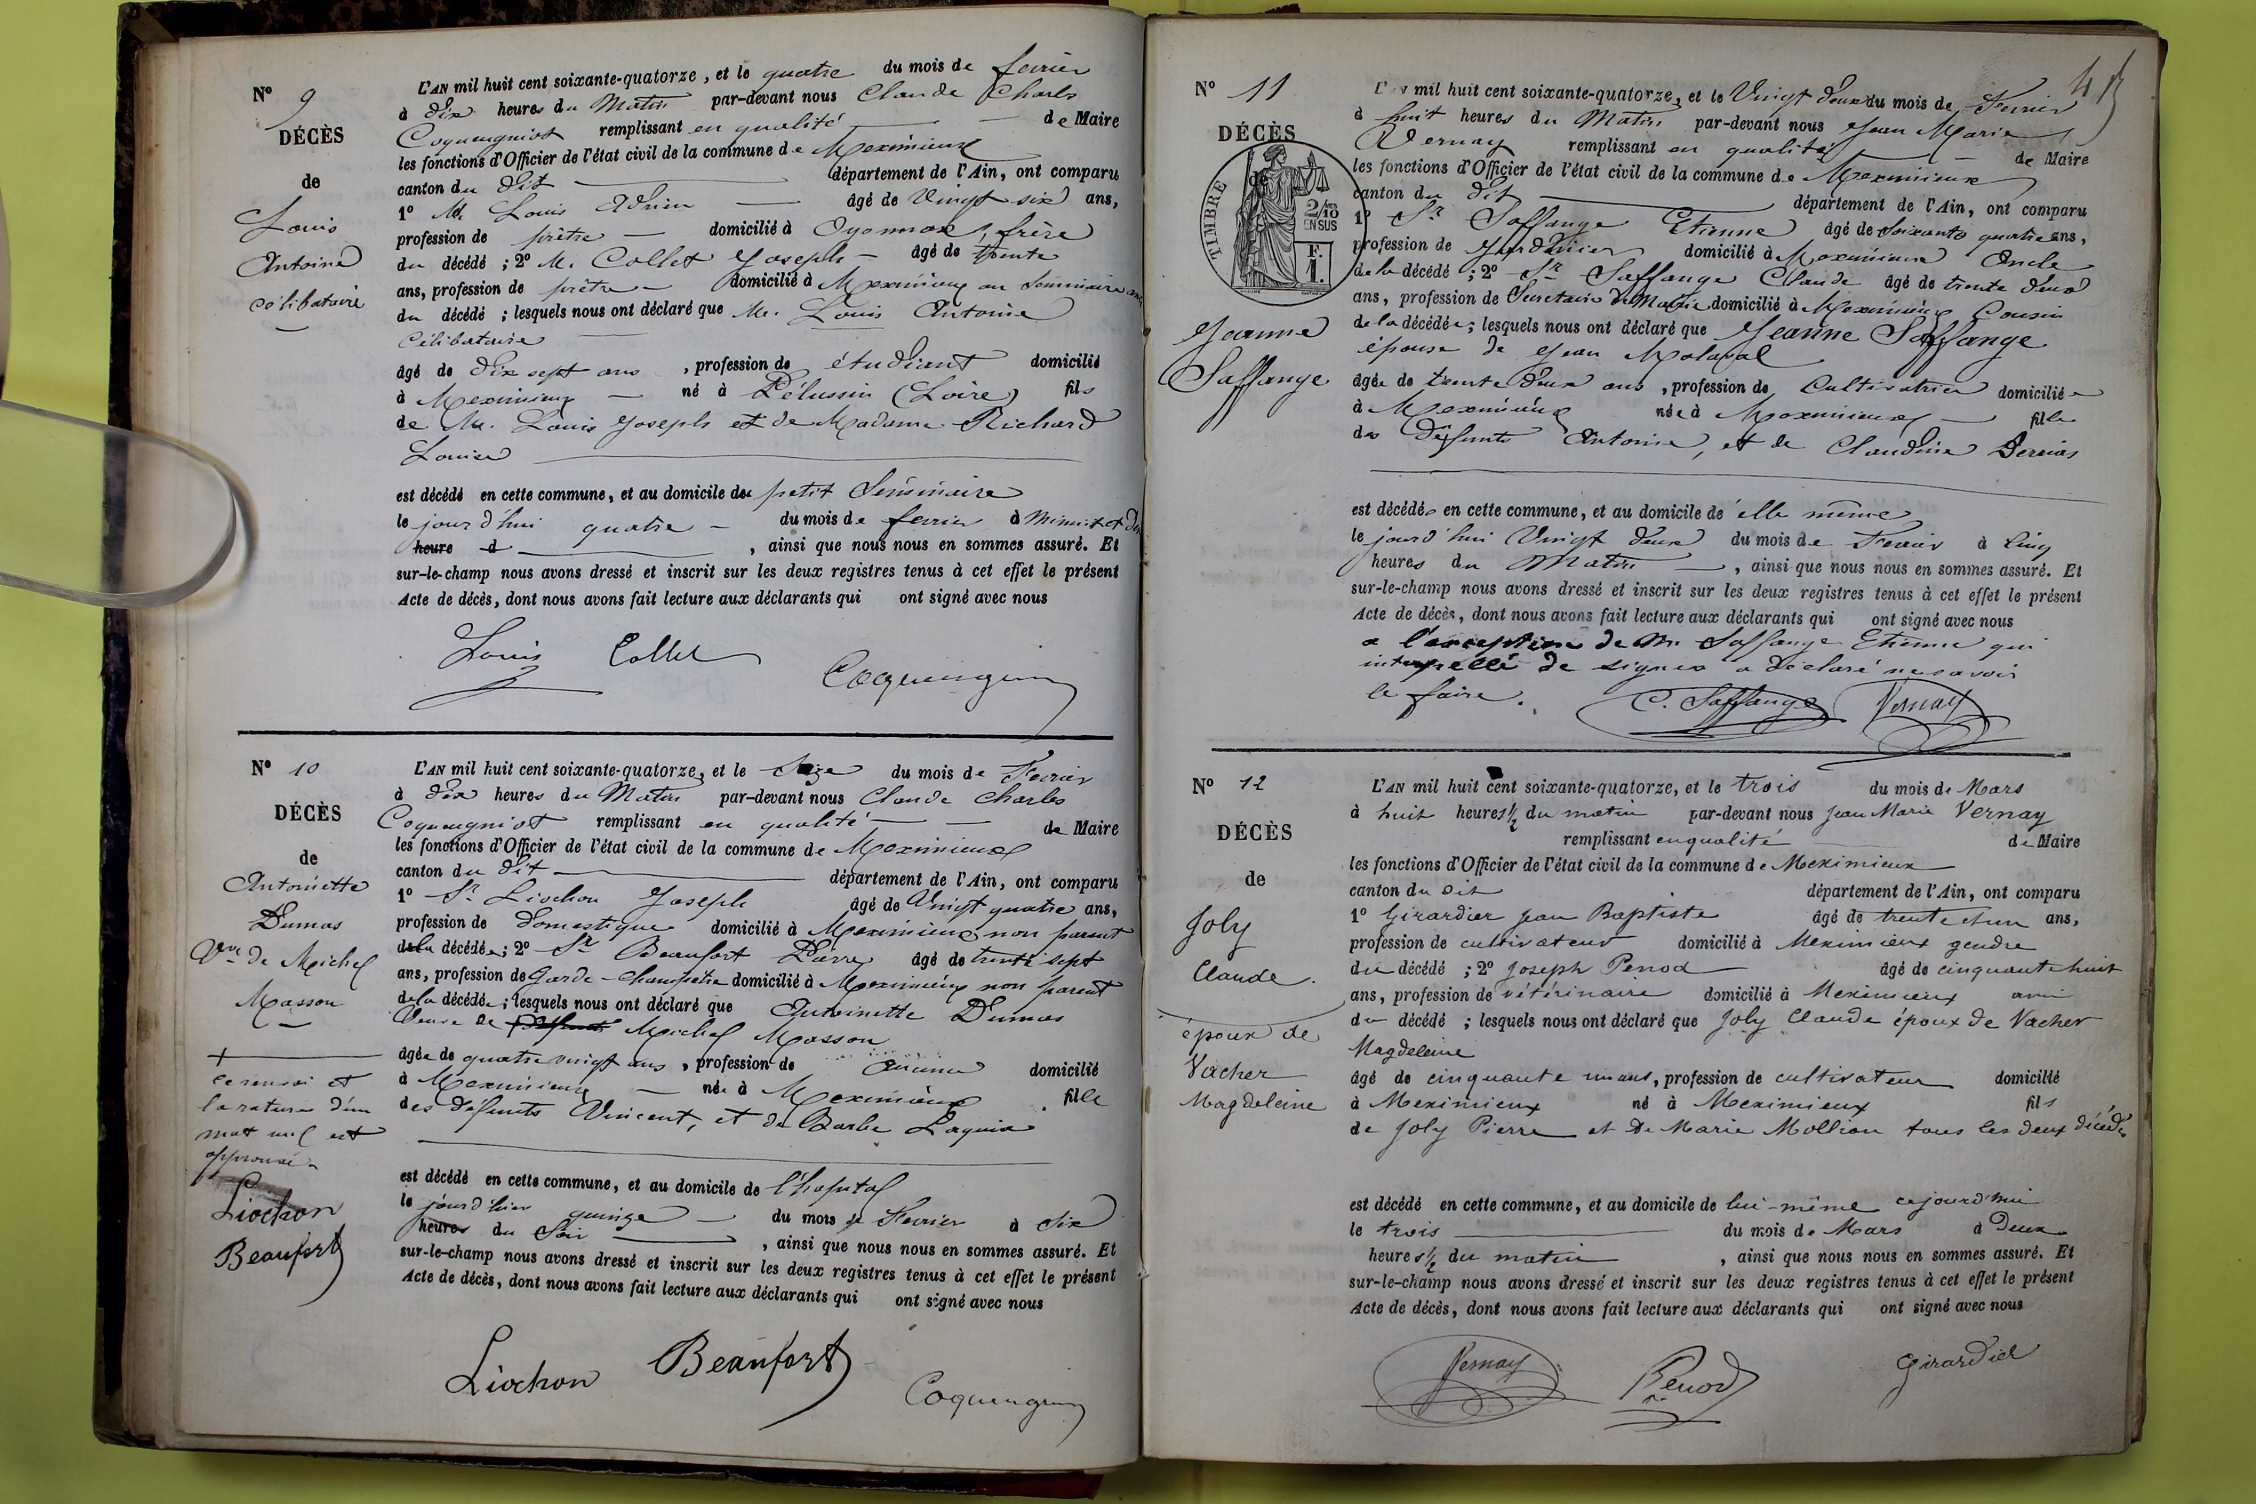 N° 9
DÉCÈS
de
Louis
Antoine
célibataire
L'AN mil huit cent soixante-quatorze, et le quatre du mois de fevrier
à dix heures du Matin par-devant nous Claude Charles
Coquengniot remplissant en qualité de Maire
les fonctions d'Officier de l'état civil de la commune de Meximieux
canton du dit département de l'Ain, ont comparu
1° Mr. Louis Adrien âgé de Vingt six ans,
profession de prêtre domicilié à Oyonnax, frère
du décédé ; 2° M. Collet Joseph âgé de trente
ans, profession de prêtre domicilié à Meximieux au Séminaire
du décédé ; lesquels nous ont déclaré que Mr. Louis Antoine
Célibataire
âgé de dix sept ans, profession de étudiant domicilié
à Meximieux né à Pélussin (Loire) fils
de Mr. Louis Joseph et de Madame Richard
Louise
est décédé en cette commune, et au domicile de petit Séminaire
le jourd'hui quatre du mois de fevrier à minuit et
heure d , ainsi que nous nous en sommes assuré. Et
sur-le-champ nous avons dressé et inscrit sur les deux registres tenus à cet effet le présent
Acte de décès, dont nous avons fait lecture aux déclarants qui ont signé avec nous
Louis Collet Coquengniot
N° 10
DÉCÈS
de
Antoinette
Dumas
Vve de Michel
Masson
+
ce renvoi et
la rature d'un
mot nul est
approuvé
Liochon
Beaufort
L'AN mil huit cent soixante-quatorze, et le Seize du mois de Fevrier
à dix heures du Matin par-devant nous Claude Charles
Coquengniot remplissant en qualité de Maire
les fonctions d'Officier de l'état civil de la commune de Meximieux
canton du dit département de l'Ain, ont comparu
1° Sr. Liochon Joseph âgé de Vingt quatre ans,
profession de domestique domicilié à Meximieux non parent
de la décédée ; 2° Sr Beaufort Pierre âgé de trente sept
ans, profession de Garde-Champêtre domicilié à Meximieux non parent
de la décédée ; lesquels nous ont déclaré que Antoinette Dumas
Veuve de Michel Masson
âgée de quatre vingt ans, profession de aucune domicilié
à Meximieux née à Meximieux fille
des défunts Vincent, et de Barbe
est décédé en cette commune, et au domicile de l'hopital
le jourd'hier quinze du mois de Fevrier à Six
heures du Soir , ainsi que nous nous en sommes assuré. Et
sur-le-champ nous avons dressé et inscrit sur les deux registres tenus à cet effet le présent
Acte de décès, dont nous avons fait lecture aux déclarants qui ont signé avec nous
Liochon Beaufort Coquengniot
N° 11
DÉCÈS
de
TIMBRE
2/10
EN SUS
F.
1.
Jeanne
Saffange
L'AN mil huit cent soixante-quatorze, et le Vingt deux du mois de Fevrier
à huit heures du Matin par-devant nous Jean Marie
Vernay remplissant en qualité de Maire
les fonctions d'Officier de l'état civil de la commune de Meximieux
canton du dit département de l'Ain, ont comparu
1° Sr Saffange Etienne âgé de soixante quatre ans,
profession de Jardinier domicilié à Meximieux Oncle
de la décédé ; 2° Sr Saffange Claude âgé de trente deux
ans, profession de Secrétaire de Mairie domicilié à Meximieux Cousin
de la décédée ; lesquels nous ont déclaré que Jeanne Saffange
épouse de Jean Molaval
âgée de trente deux ans, profession de Cultivatrice domiciliée
à Meximieux née à Meximieux fille
des défunts Antoine, et de Claudine
est décédée en cette commune, et au domicile de elle même
le jourd'hui Vingt deux du mois de Fevrier à Cinq
heures du Matin , ainsi que nous nous en sommes assuré. Et
sur-le-champ nous avons dressé et inscrit sur les deux registres tenus à cet effet le présent
Acte de décès, dont nous avons fait lecture aux déclarants qui ont signé avec nous
a l'exception de Mr. Saffange Etienne qui
interpellé de signer a déclaré ne savoir
le faire.
C. Saffange Vernay
N° 12
DÉCÈS
de
Joly
Claude.
époux de
Vacher
Magdeleine
L'AN mil huit cent soixante-quatorze, et le trois du mois de Mars
à huit heures 1/2 du matin par-devant nous Jean Marie Vernay
remplissant en qualité de Maire
les fonctions d'Officier de l'état civil de la commune de Meximieux
canton du dit département de l'Ain, ont comparu
1° Girardier Jean Baptiste âgé de trente et un ans,
profession de cultivateur domicilié à Meximieux gendre
du décédé ; 2° Joseph Penod âgé de cinquante huit
ans, profession de vétérinaire domicilié à Meximieux ami
du décédé ; lesquels nous ont déclaré que Joly Claude époux de Vacher
Magdeleine
âgé de cinquante un ans, profession de cultivateur domicilié
à Meximieux né à Meximieux fils
de Joly Pierre et de Marie Mollion tous les deux décédés
est décédé en cette commune, et au domicile de lui-même cejourd'hui
le trois du mois de Mars à deux
heures 1/2 du matin , ainsi que nous nous en sommes assuré. Et
sur-le-champ nous avons dressé et inscrit sur les deux registres tenus à cet effet le présent
Acte de décès, dont nous avons fait lecture aux déclarants qui ont signé avec nous
Vernay Penod Girardier